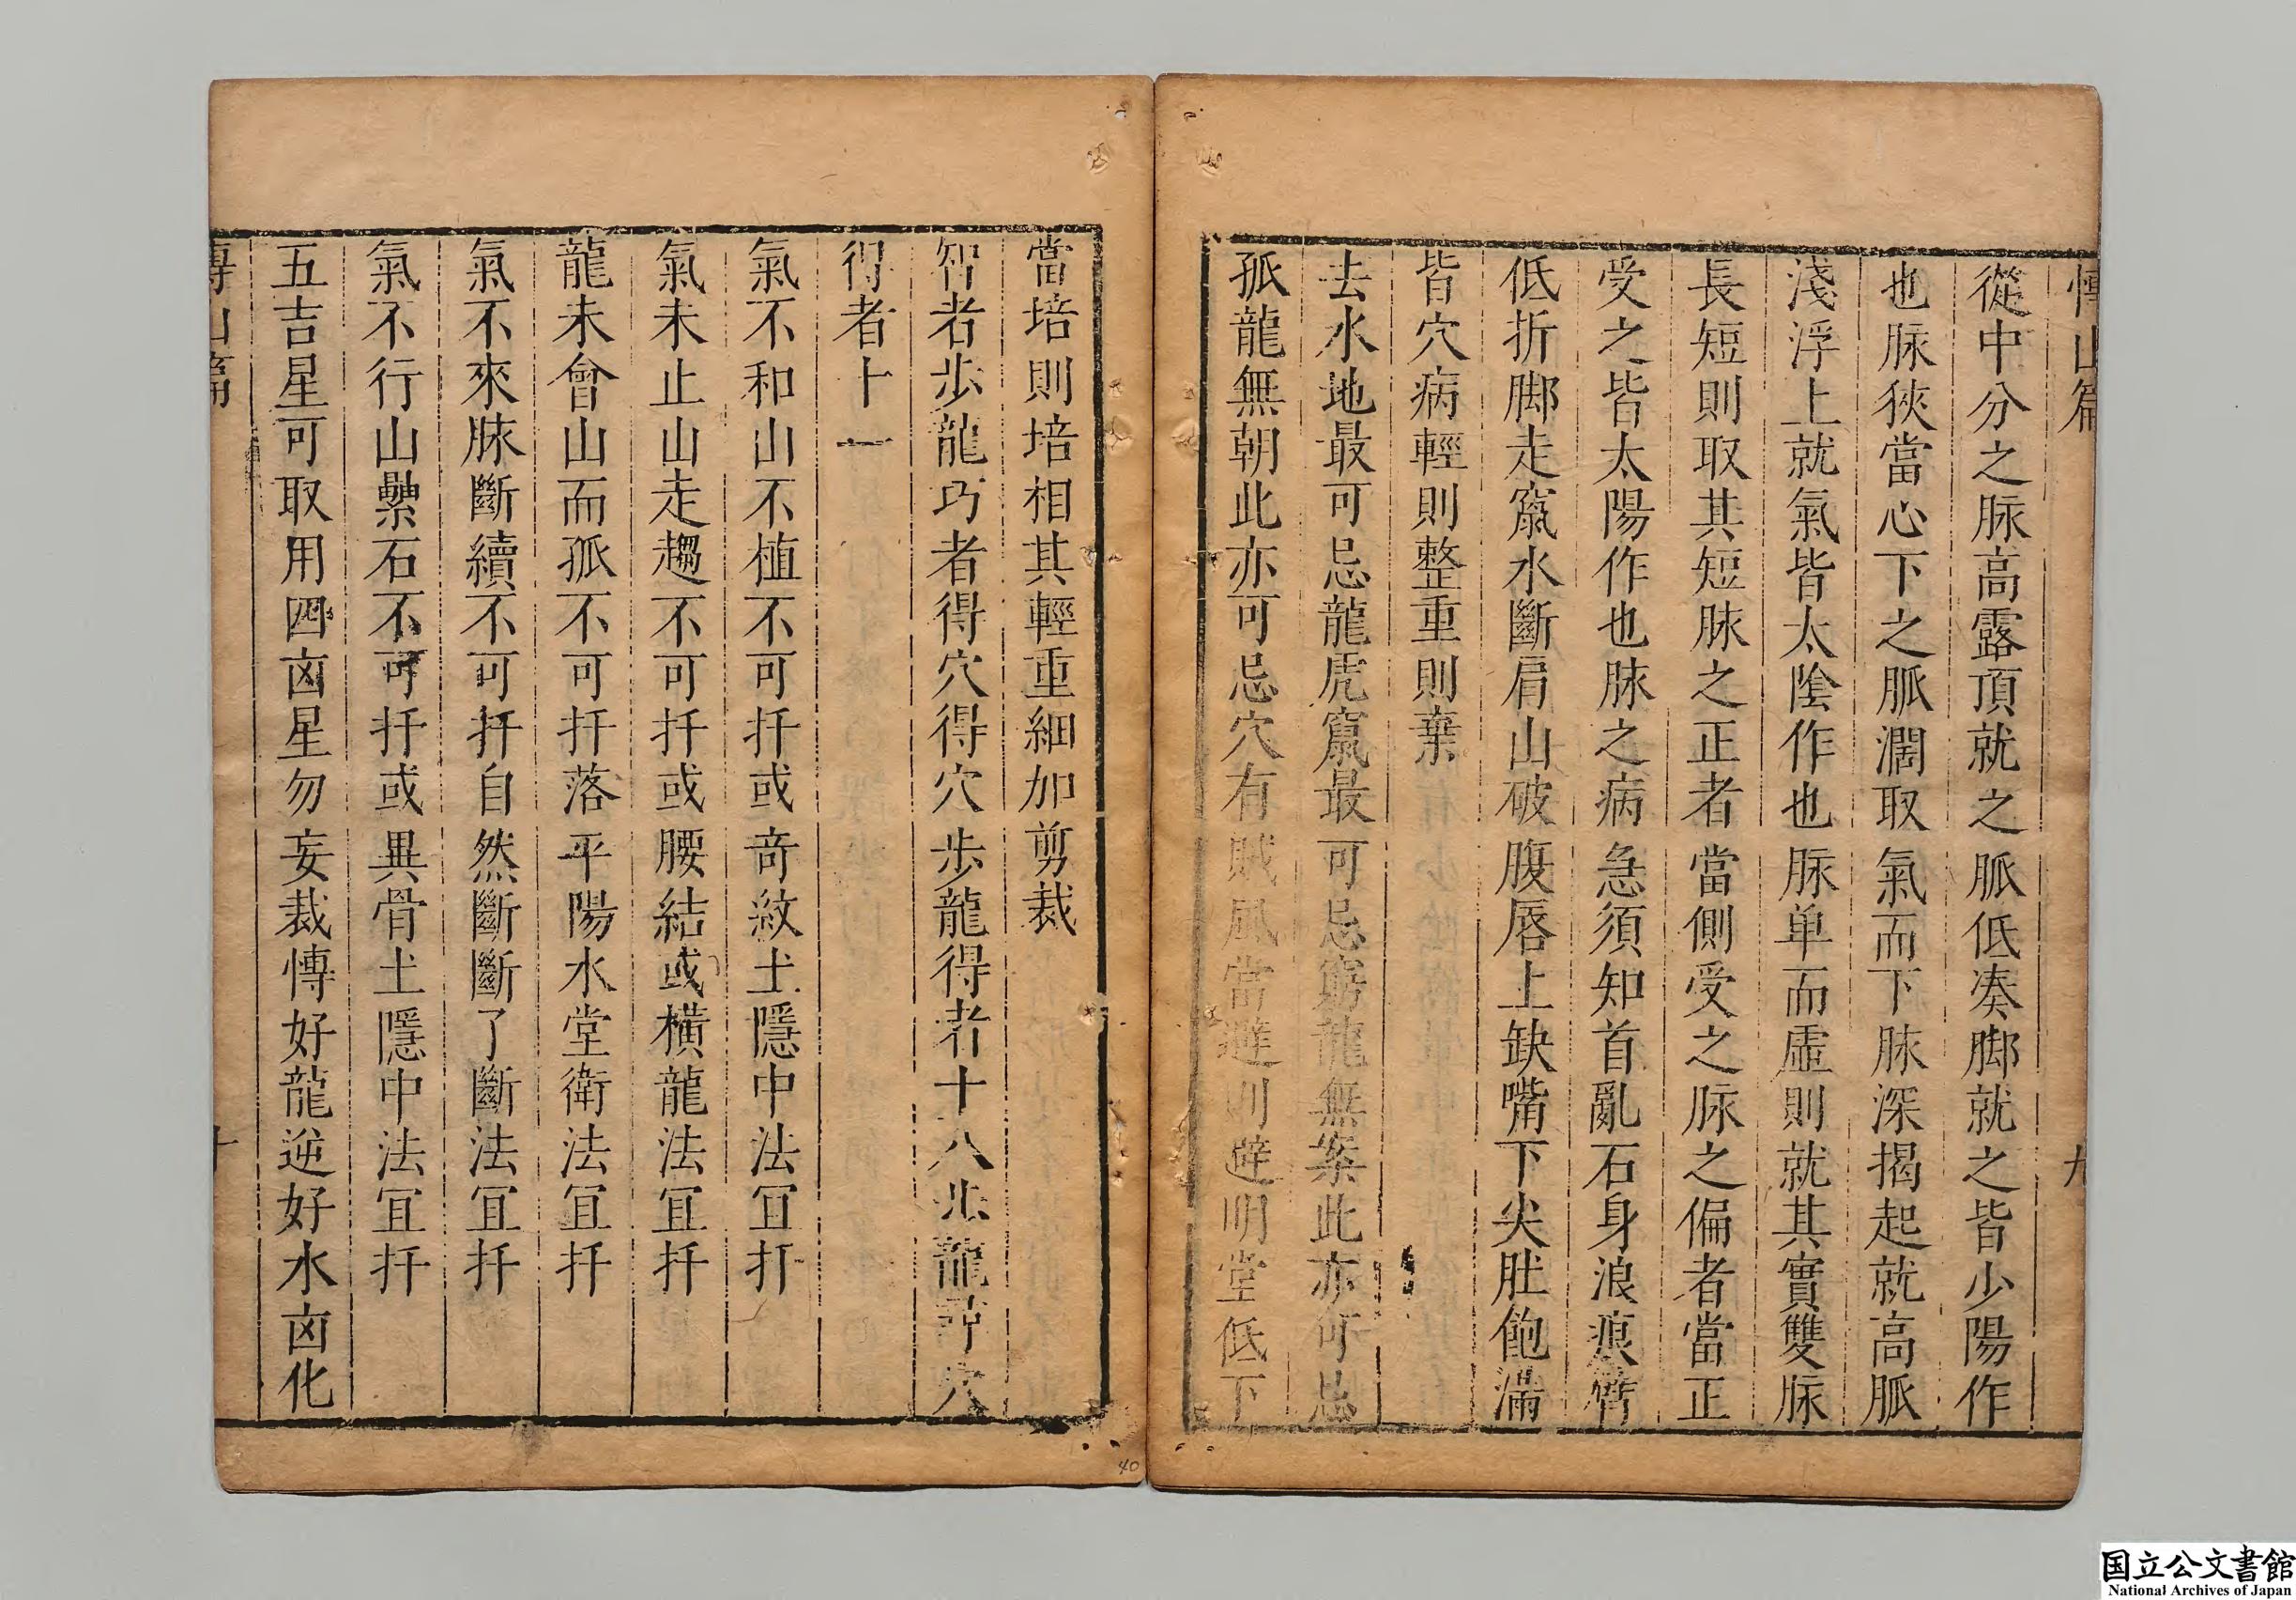 博山篇 九
從中分之脉高露頂就之脈低凑脚就之皆少陽作
也脉狹當心下之脈濶取氣而下脉深揭起就高脈
淺浮上就氣皆太陰作也脉单而虛則就其實雙脉
長短則取其短脉之正者當側受之脉之偏者當正
受之皆太陽作也脉之病急須知首亂石身浪痕
低折脚走竄水斷肩山破腹唇上缺嘴下尖肚飽滿
皆穴病輕則整重則棄
去水地最可忌龍虎竄最可忌窮龍無案此亦可忌
孤龍無朝此亦可忌穴有賊風當避則避明堂低下
當培則培相其輕重細加剪裁
智者歩龍巧者得穴得穴歩龍得者十八歩龍尋穴
得者十一
氣不和山不植不可扦或竒紋土隱中法冝扦
氣未止山走趨不可扦或腰結或橫龍法冝扦
龍未會山而孤不可扦落平陽水堂衛法冝扦
氣不來脉斷續不可扦自然斷斷了斷法冝扦
氣不行山纍石不可扦或異骨土隱中法冝扦
五吉星可取用四凶星勿妄裁慱好龍逆好水凶化
博山篇 十
40
国立公文書館
National Archives of Japan